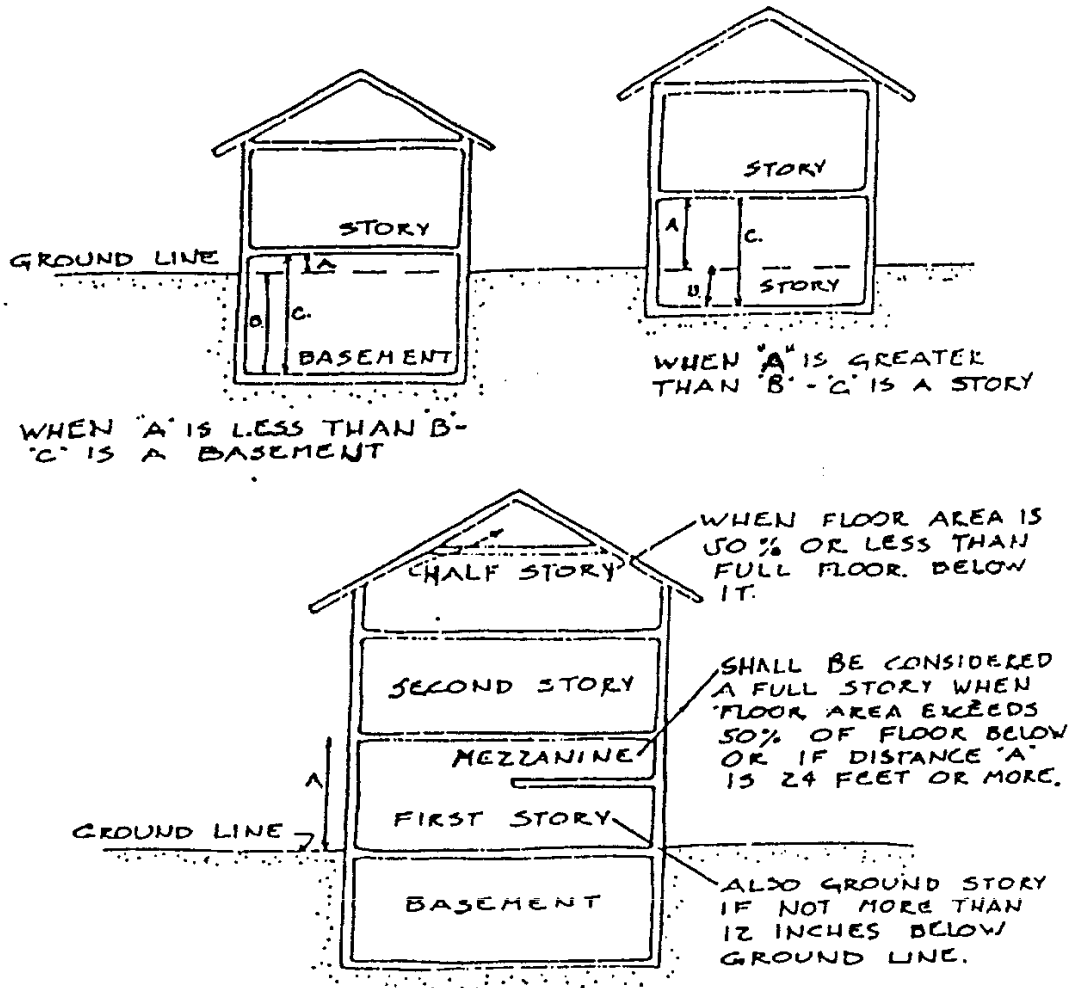 STORY
GROUND LINE
A
B.
C.
BASEMENT
WHEN "A" IS LESS THAN "B" -
"C" IS A BASEMENT
STORY
A
C.
B.
STORY
WHEN "A" IS GREATER
THAN "B" - "C" IS A STORY
HALF STORY
WHEN FLOOR AREA IS
50% OR LESS THAN
FULL FLOOR. BELOW
IT.
SECOND STORY
SHALL BE CONSIDERED
A FULL STORY WHEN
FLOOR AREA EXCEEDS
50% OF FLOOR BELOW
OR IF DISTANCE "A"
IS 24 FEET OR MORE.
MEZZANINE
A
FIRST STORY
GROUND LINE
BASEMENT
ALSO GROUND STORY
IF NOT MORE THAN
12 INCHES BELOW
GROUND LINE.